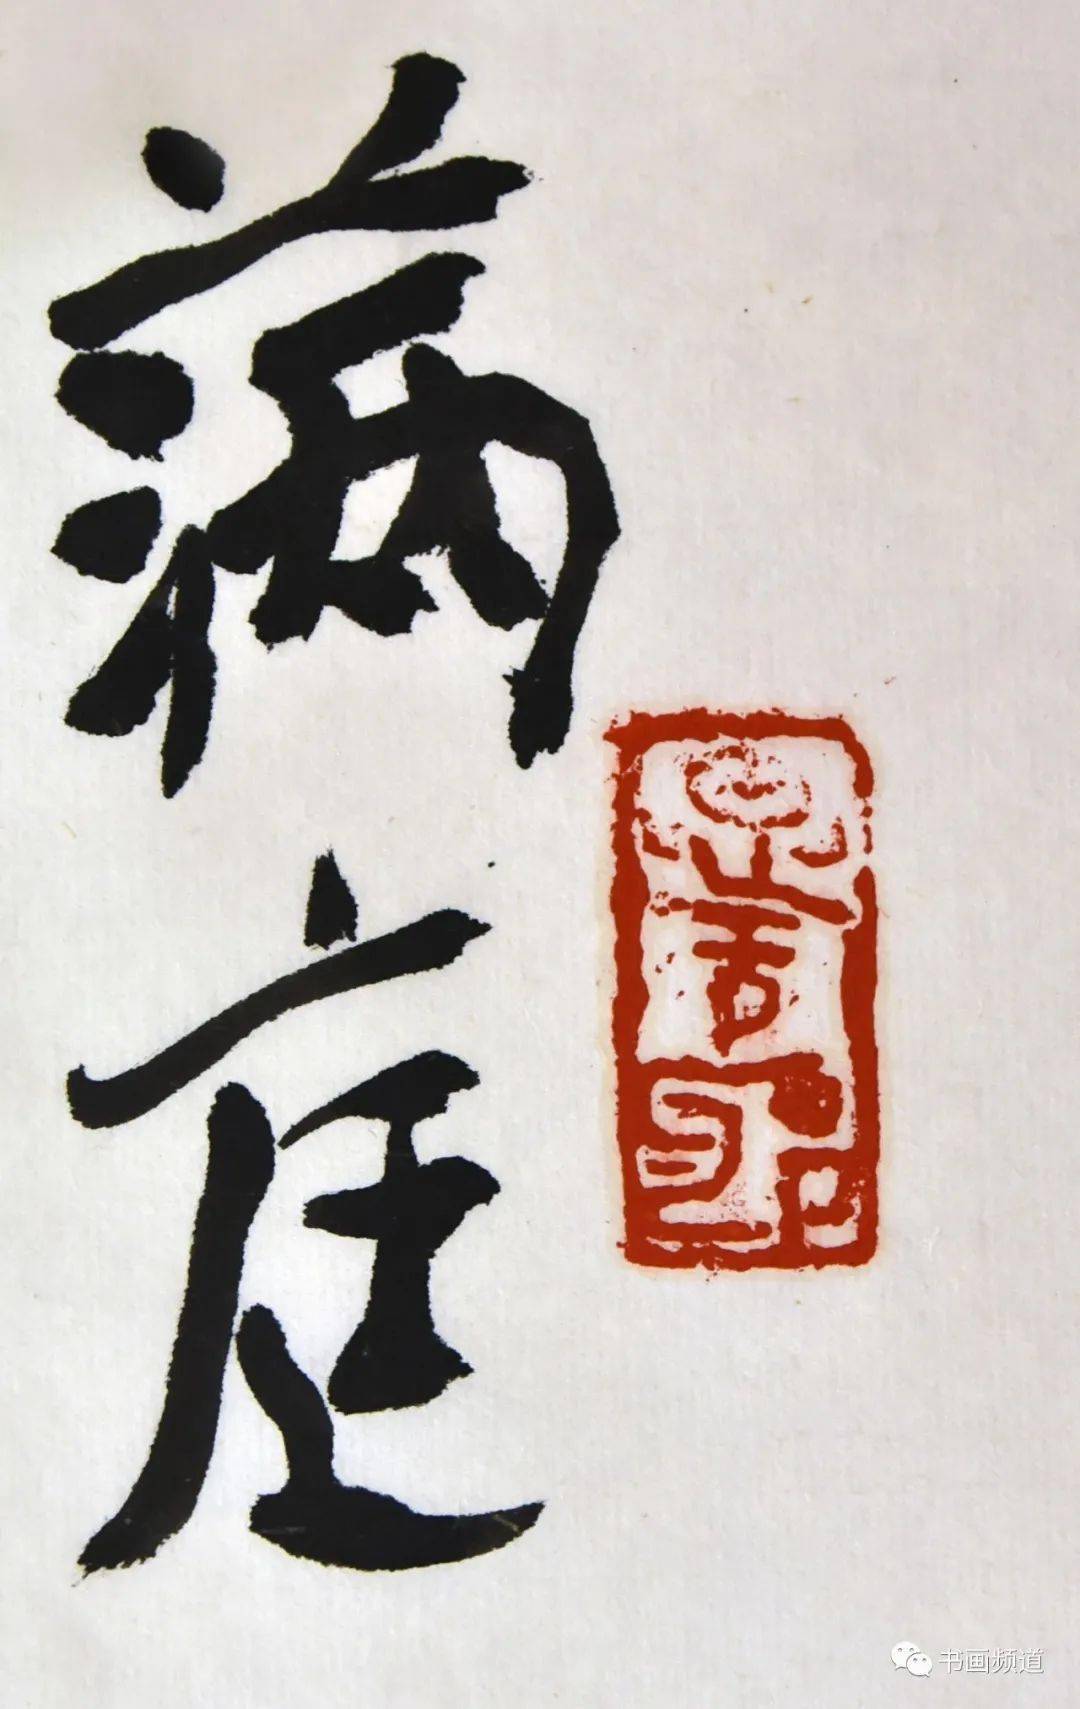 满庭
书画频道